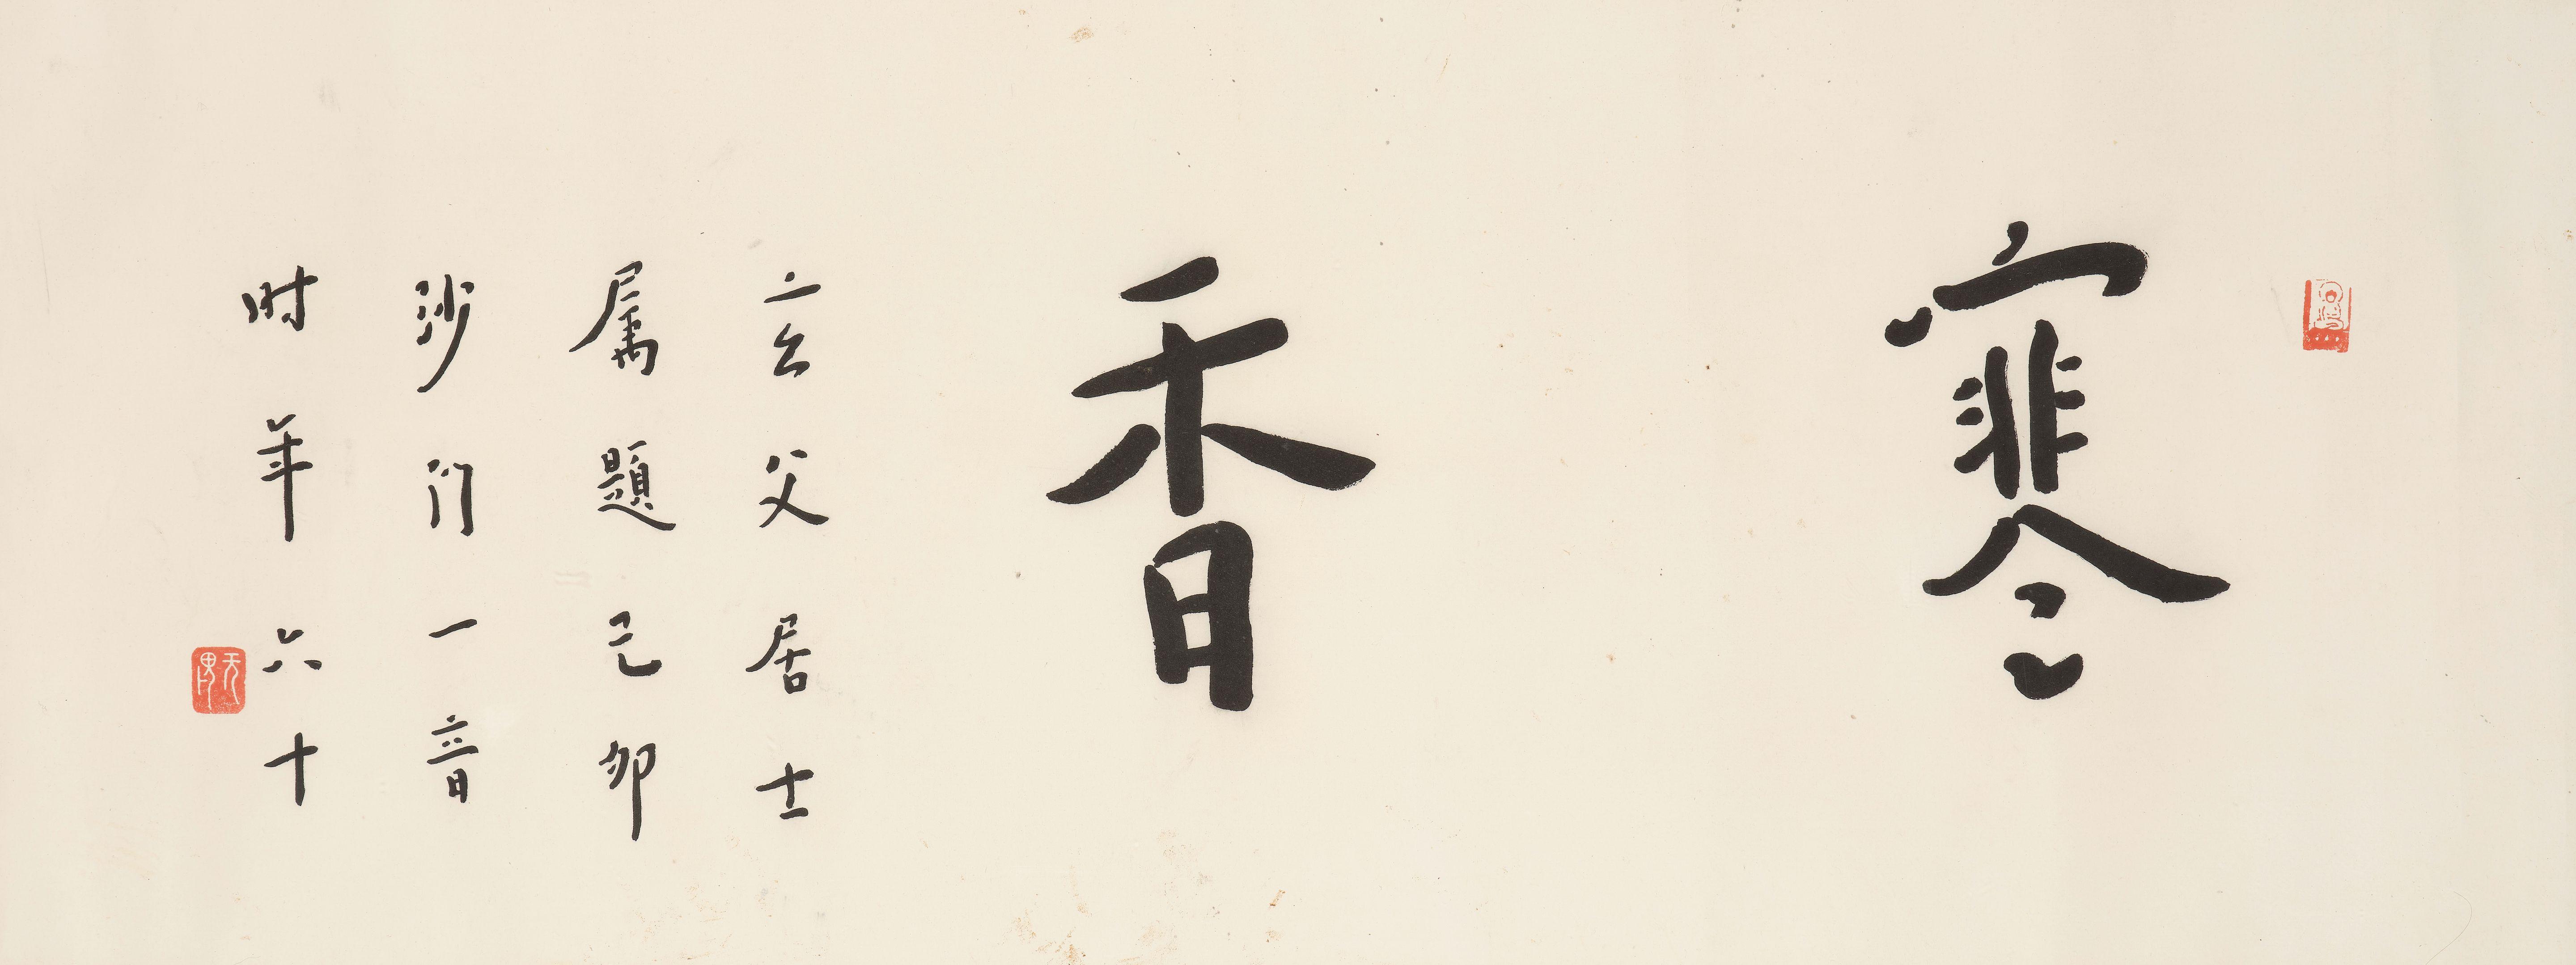 寒香
玄父居士
属題己卯
沙门一音
时年六十